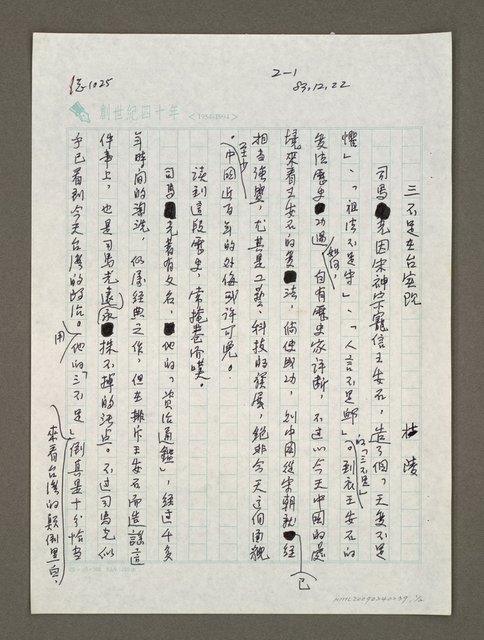 總1025
2-1
83.12.22
創世紀四十年 <1954-1994>
三不足在台立院
桂陵
司馬光因宋神宗寵信王安石,造了個「天變不足
懼」、「祖法不足守」、「人言不足卹」的「三不足」。到底王安石的
變法歷史功過如何,自有歷史家評斷,不過以今天中國的處
境來看王安石的變法,倘使成功,則中國從宋朝就已經
相當強盛,尤其是工藝、科技的發展,絕非今天這個面貌
。至少中國近百年的外侮或許可免。
讀到這段歷史,常掩卷而嘆。
司馬光著有文名,他的「資治通鑑」,經過千多
年時間的淘洗,仍屬經典之作,但在排斥王安石而造謠這
件事上,也是司馬光永遠抹不掉的污点。不過司馬光似
乎已看到今天台灣的政治。他的「三不足」用
來看台灣的顛倒黑白,倒真是十分恰當
HMM20090240239,1/2